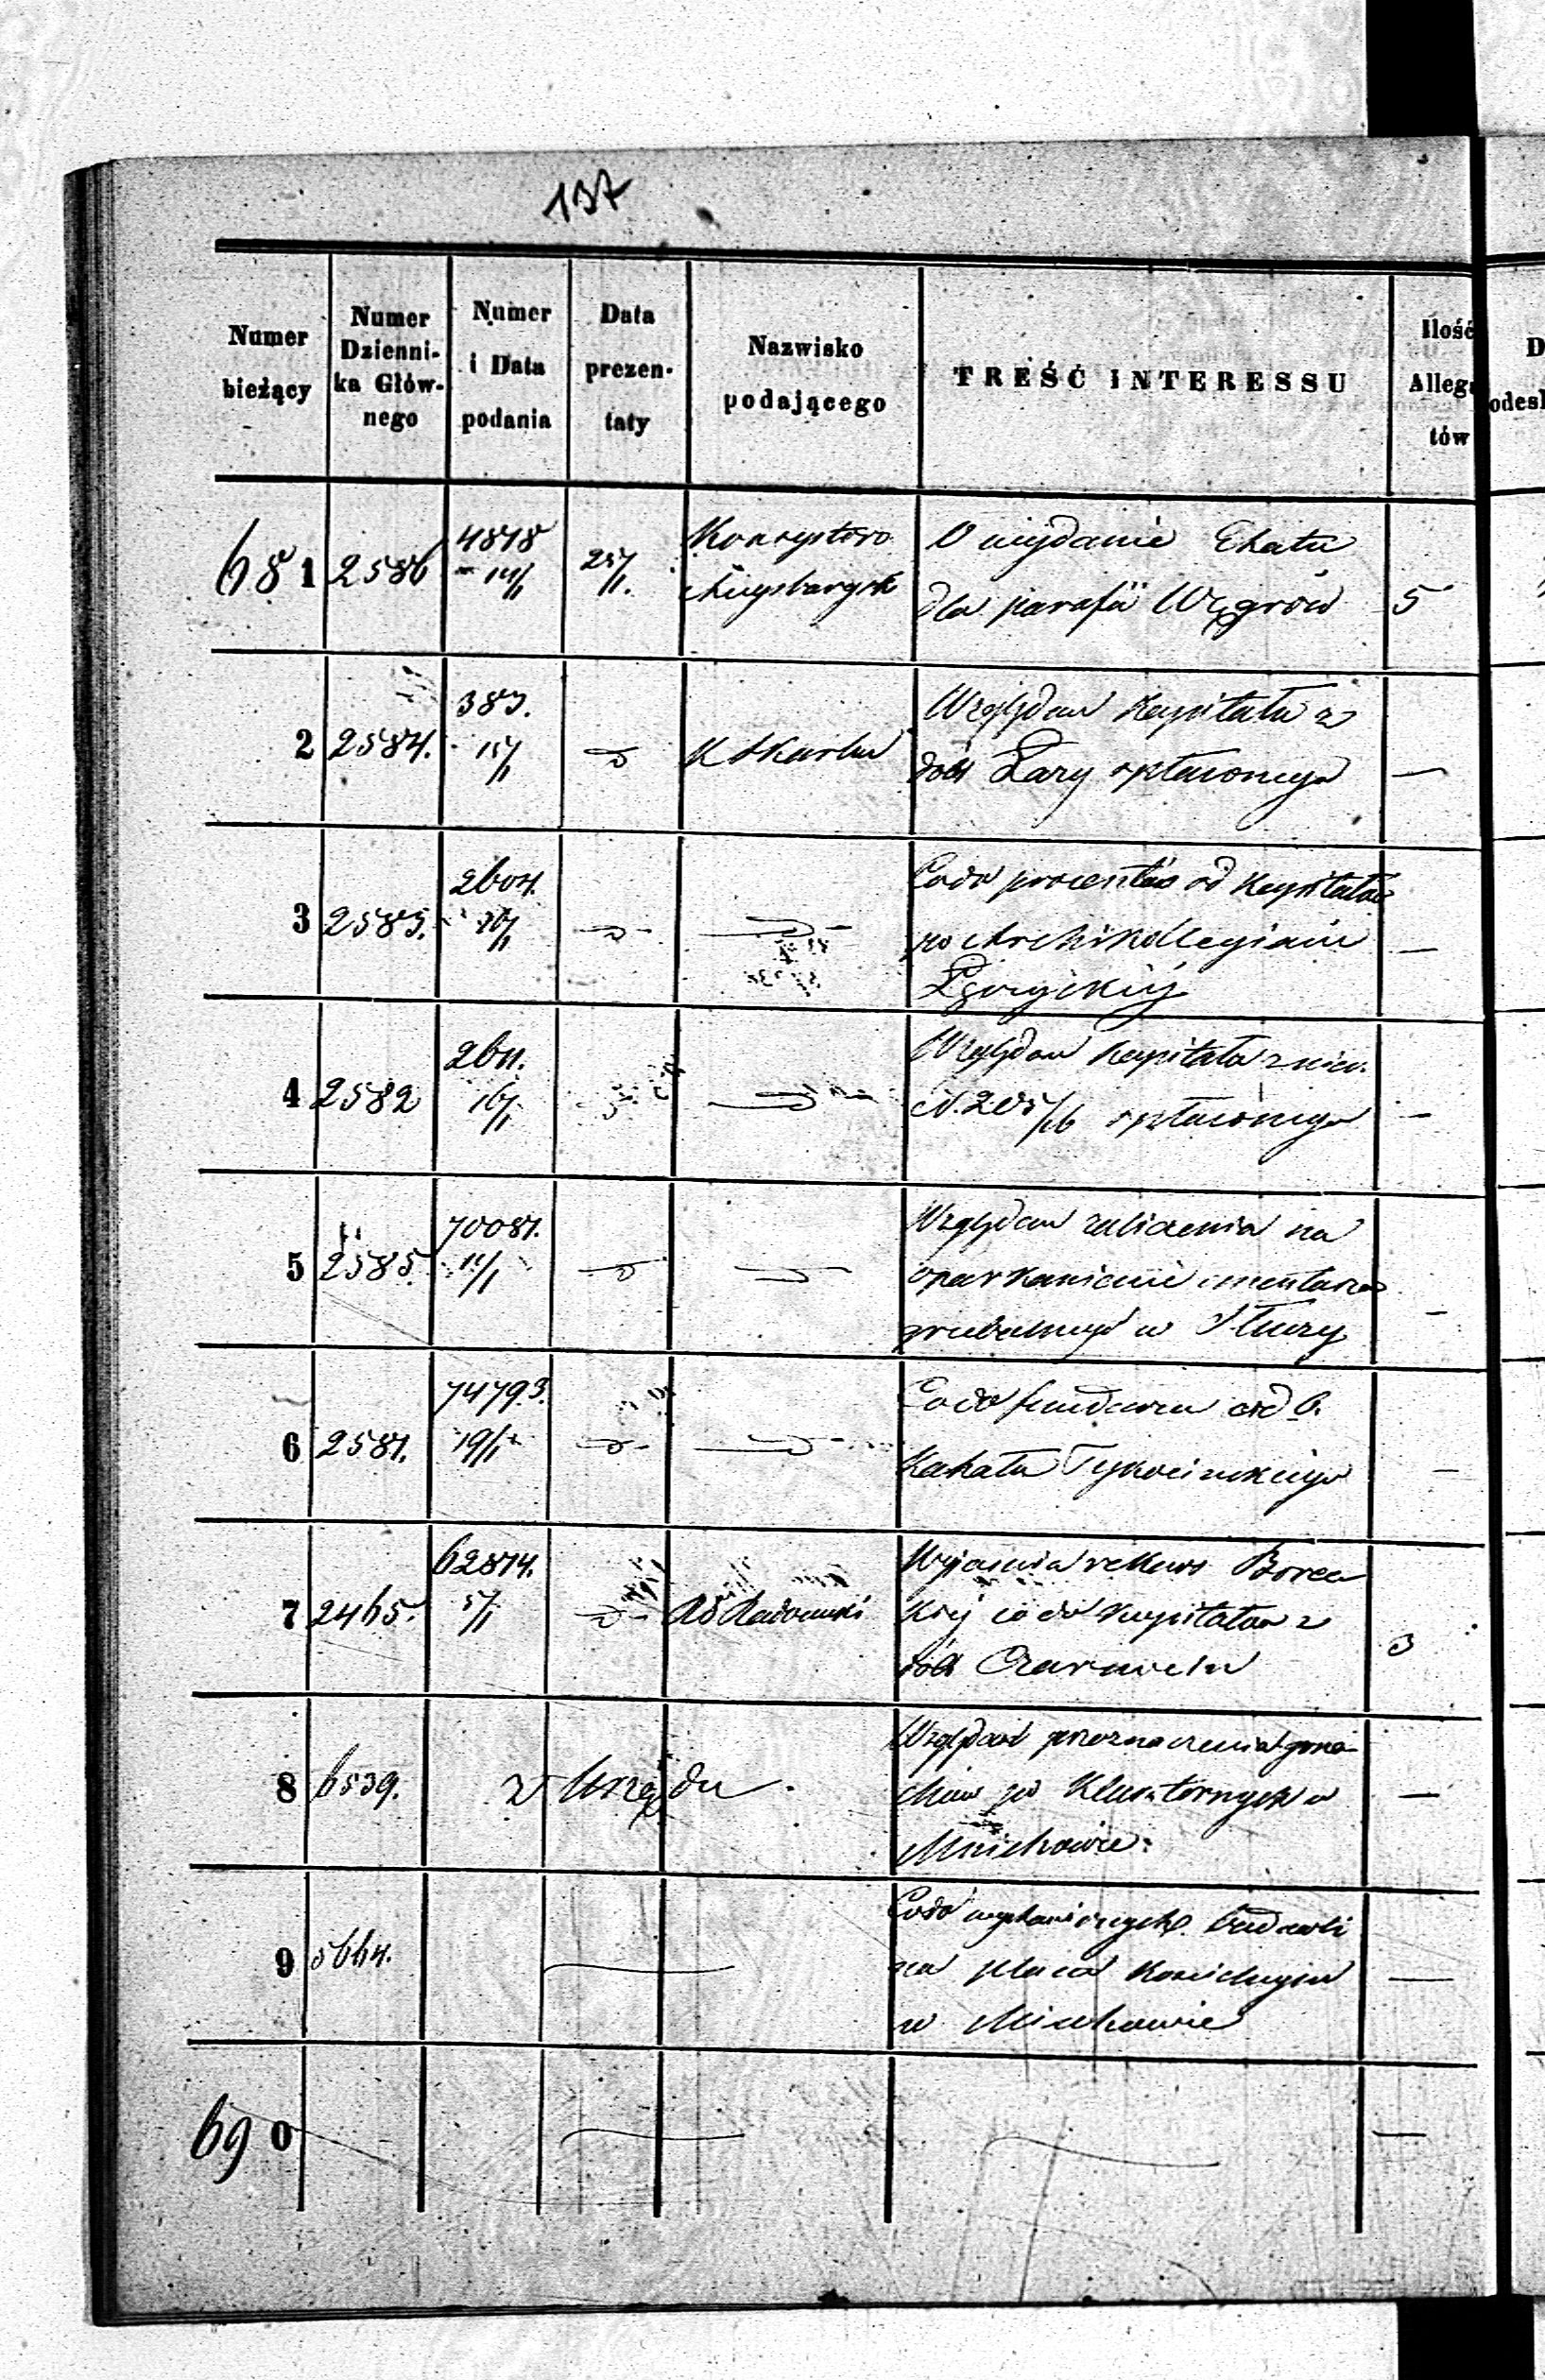 137
Numer bieżący
Numer Dzienni-ka Głów-nego
Numer i Data podania
Data prezen-taty
Nazwisko podającego
TREŚĆ INTERESSU
Ilość Alleg tów
D odesł
681 2586 4878 14/1 25/1. Konsystorz O wydanie Etatu
Augsburgsk dla parafii Węgrów 5
2 2584. 383. 15/1 K Skarbu Względem Kapitału z
dóbr Łazy spłaconego —
3 2583. 2604. 16/1 Co do procentów od Kapitałów
po Archikollegiacie —
Łęczyckiej
4 2582 2611. 16/1 Względem Kapitału z nier.
N. 205/16 spłaconego —
5 2585. 70081. 11/1 Względem zaliczenia na
oparkanienie cmentarza —
grzebalnego w Słuszy
6 2581. 74793. 19/1 Co do funduszu od b.
Kahału Tykocińskiego —
7 2465. 62874. 5/1 Rd Radomski Wyjaśnia rekurs Borec
kiej co do Kapitałów z 3
dóbr
8 6539. z Urzędu Względem przeznaczenia gma
chów po Klasztornych w —
Mnichowie.
9 5664. Co do budowli
na placu Kościelnym —
w Miechowie
690 —